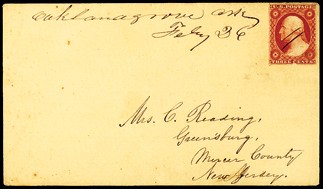 Oaklandgrove Ark
Feby 26
U.S. POSTAGE
THREE CENTS
Mrs. C. Reading,
Greensburg,
Mercer County
New Jersey.